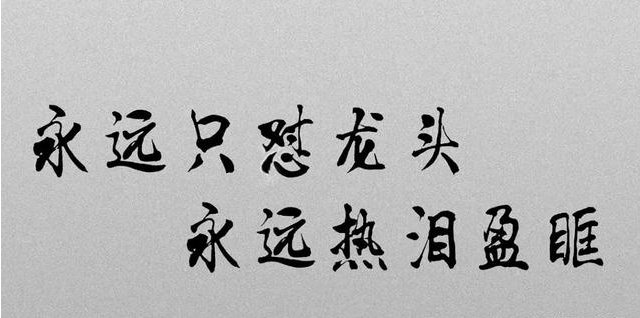 永远只怼龙头
永远热泪盈眶